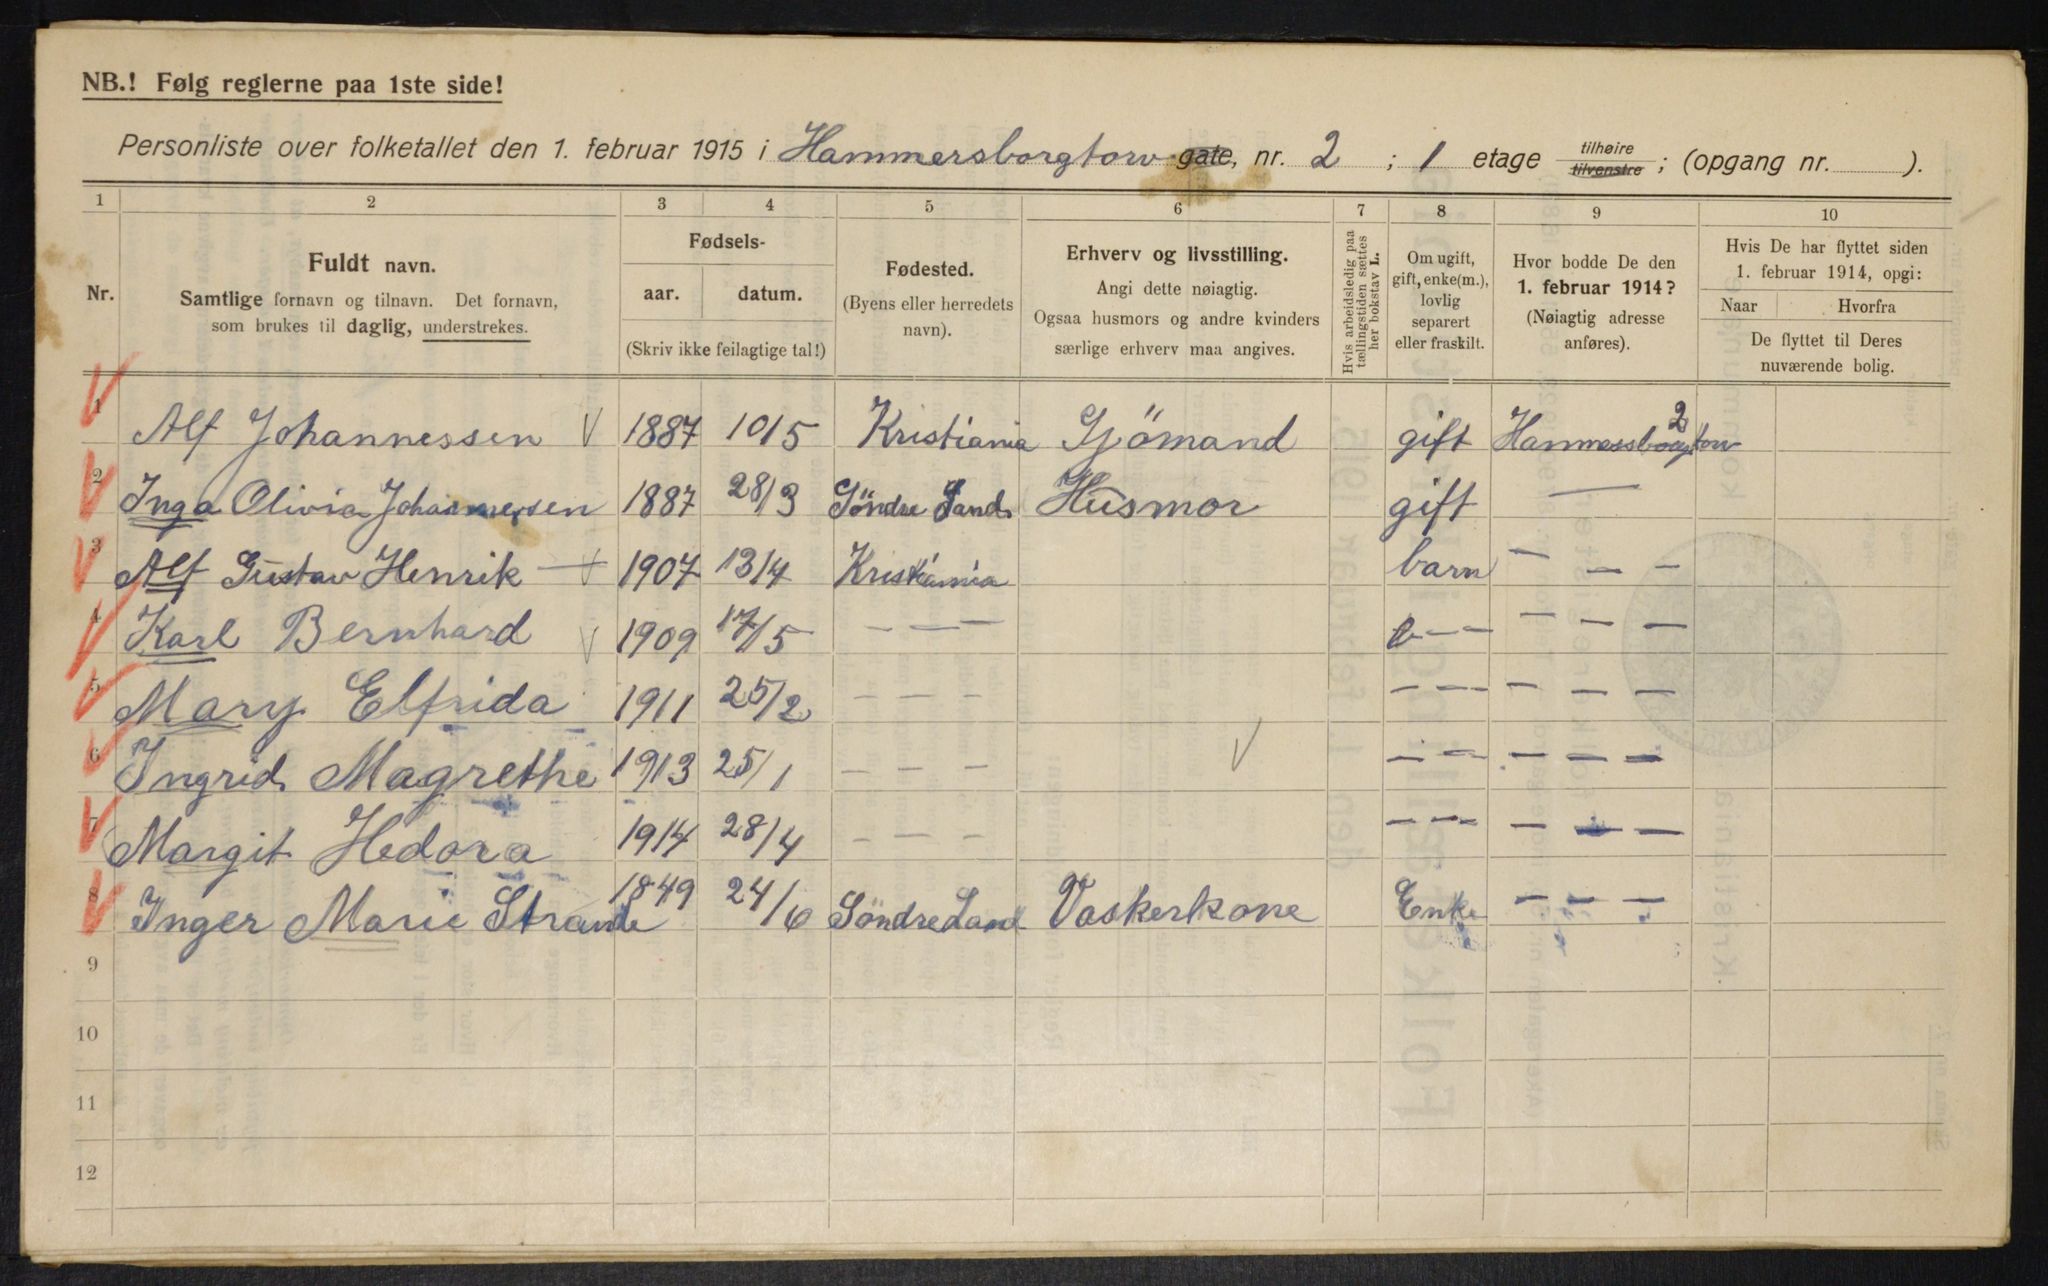 NB.! Følg reglerne paa 1ste side!
Personliste over folketallet den 1. februar 1915 i Hammersborgtorv gate, nr. 2 ; 1 etage tilhøire tilvenstre ; (opgang nr. ).
1 2 3 4 5 6 7 8 9 10
Nr. Fuldt navn. Samtlige fornavn og tilnavn. Det fornavn, som brukes til daglig, understrekes.
Fødsels- aar. datum. (Skriv ikke feilagtige tal!)
Fødested. (Byens eller herredets navn).
Erhverv og livsstilling. Angi dette nøiagtig. Ogsaa husmors og andre kvinders særlige erhverv maa angives.
Hvis arbeidsledig paa tællingstiden sættes her bokstav L.
Om ugift, gift, enke(m.), lovlig separert eller fraskilt.
Hvor bodde De den 1. februar 1914? (Nøiagtig adresse anføres).
Hvis De har flyttet siden 1. februar 1914, opgi: Naar Hvorfra De flyttet til Deres nuværende bolig.
1 Alf Johannessen 1887 10/5 Kristiania Sjömand gift Hammersborgtorv 2
2 Inga Olivia Johannessen 1887 28/3 Söndre Land Husmor gift —
3 Alf Gustav Henrik 1907 13/4 Kristiania barn — — —
4 Karl Bernhard 1909 17/5 — — — b — — — — —
5 Mary Elfrida 1911 25/2 — — — — — — — —
6 Ingrid Magrethe 1913 25/1 — — — — — — — —
7 Margit Hedora 1914 28/4 — — — — — — — —
8 Inger Marie Strande 1849 24/6 Söndre Land Vaskerkone Enke — — —
9
10
11
12